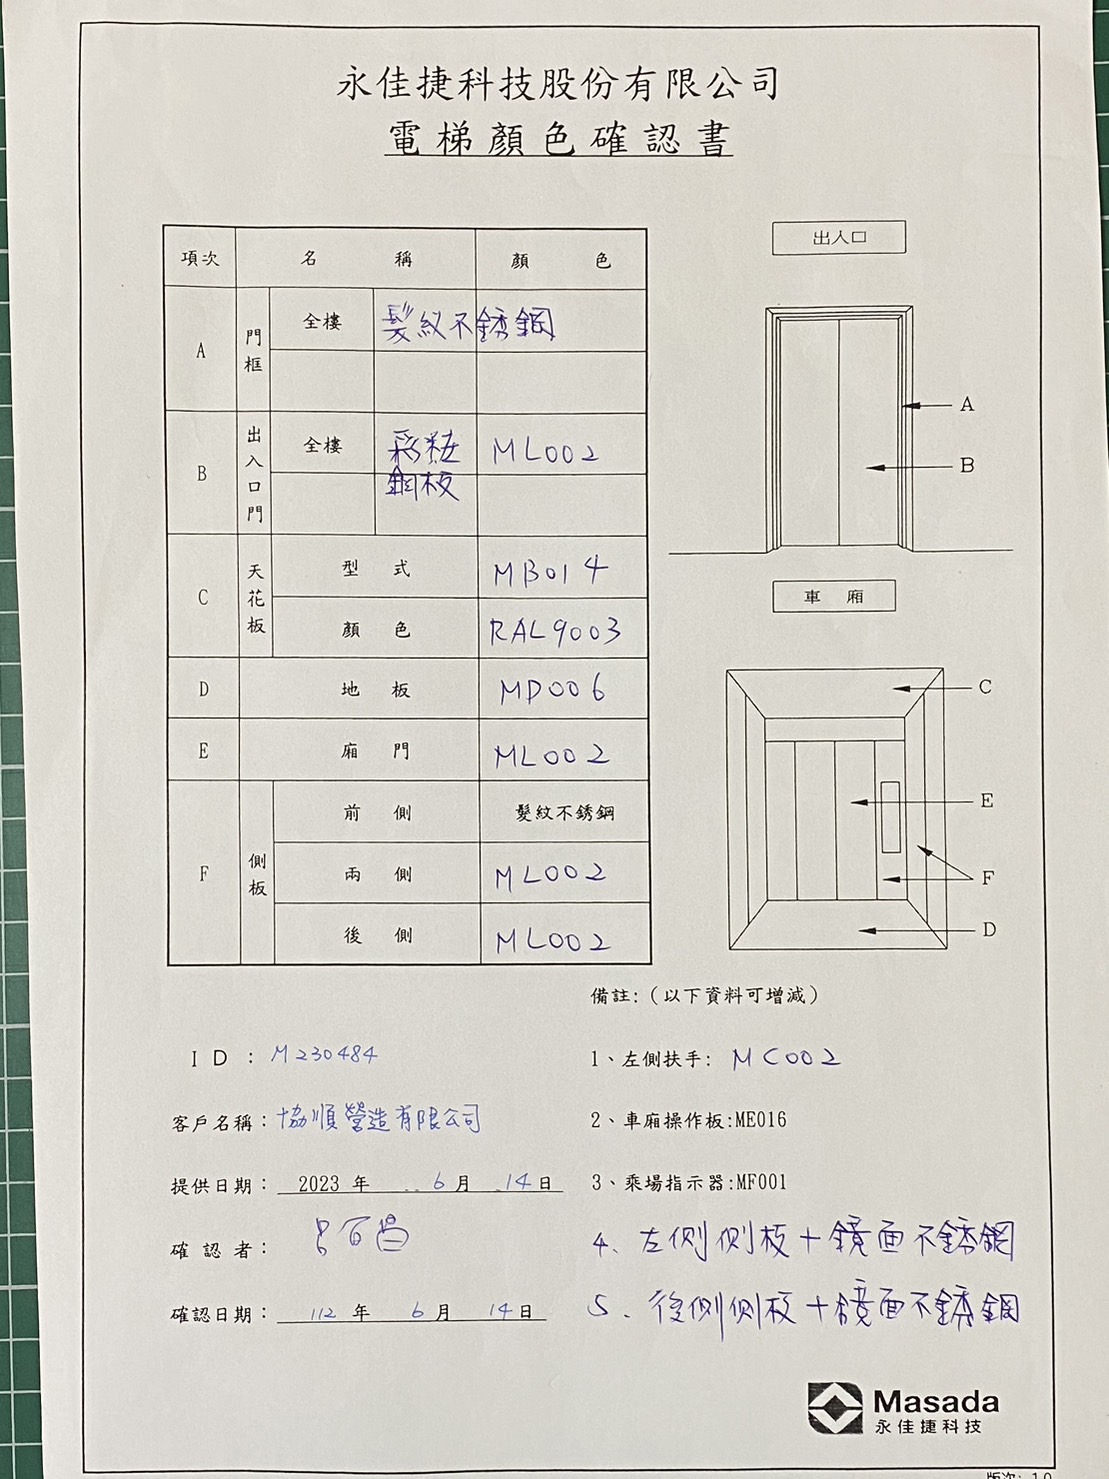 永佳捷科技股份有限公司
電梯顏色確認書
項次 名稱 顏色
A 門框 全樓 髮紋不銹鋼
B 出入口門 全樓 彩粧鋼板 ML002
C 天花板 型式 MB014
顏色 RAL9003
D 地板 MD006
E 廂門 ML002
F 側板 前側 髮紋不銹鋼
兩側 ML002
後側 ML002
出入口
A
B
車廂
C
E
F
D
備註:(以下資料可增減)
ID: M230484
1、左側扶手: MC002
客戶名稱: 協順營造有限公司
2、車廂操作板:ME016
提供日期: 2023 年 6 月 14 日
3、乘場指示器:MF001
確認者: 呂百昌
4、左側側板+鏡面不銹鋼
確認日期: 112 年 6 月 14 日
5、後側側板+鏡面不銹鋼
Masada
永佳捷科技
版次: 1.0